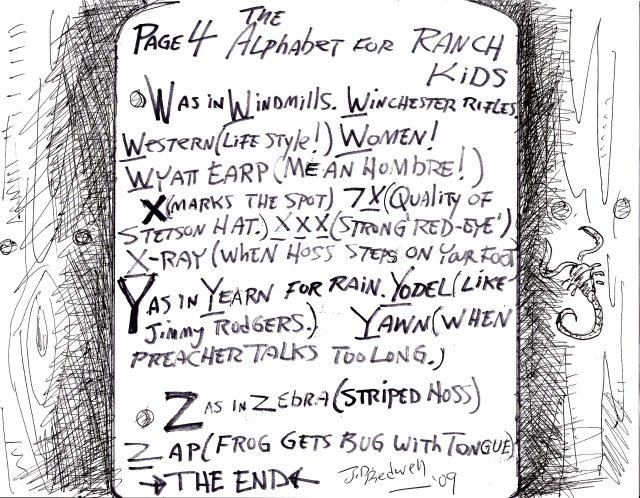 PAGE 4 THE ALPHABET FOR RANCH
KIDS
W AS IN WINDMILLS. WINCHESTER RIFLES,
WESTERN (LIFE STYLE!) WOMEN!
WYATT EARP (MEAN HOMBRE!)
X (MARKS THE SPOT) 7X (QUALITY OF
STETSON HAT.) XXX (STRONG 'RED-EYE')
X-RAY (WHEN HOSS STEPS ON YOUR FOOT
Y AS IN YEARN FOR RAIN. YODEL (LIKE
JIMMY RODGERS.) YAWN (WHEN
PREACHER TALKS TOO LONG.)
Z AS IN ZEBRA (STRIPED HOSS)
ZAP (FROG GETS BUG WITH TONGUE)
THE END J.D. Bedwell '09